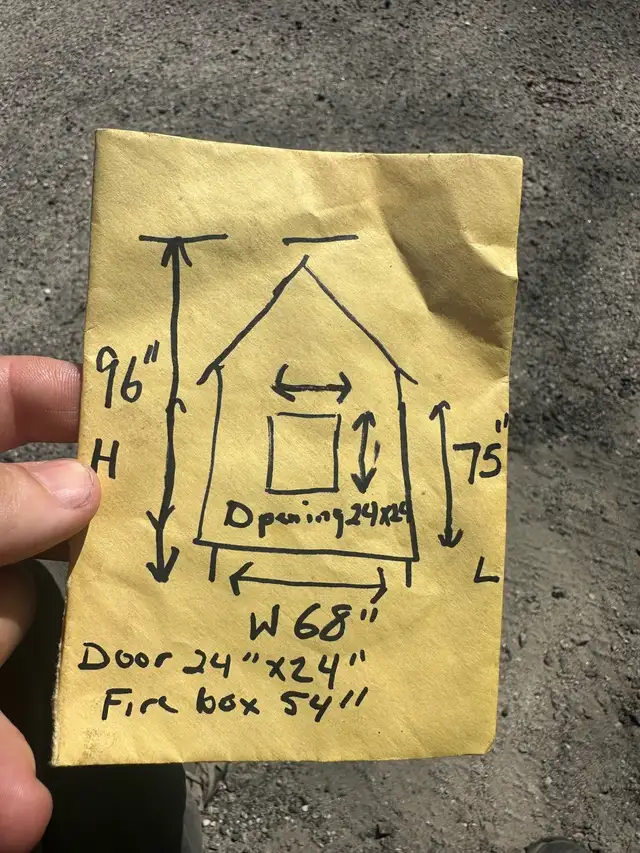 96"
H
75"
Opening 24x24
L
W 68"
Door 24"x24"
Fire box 54"